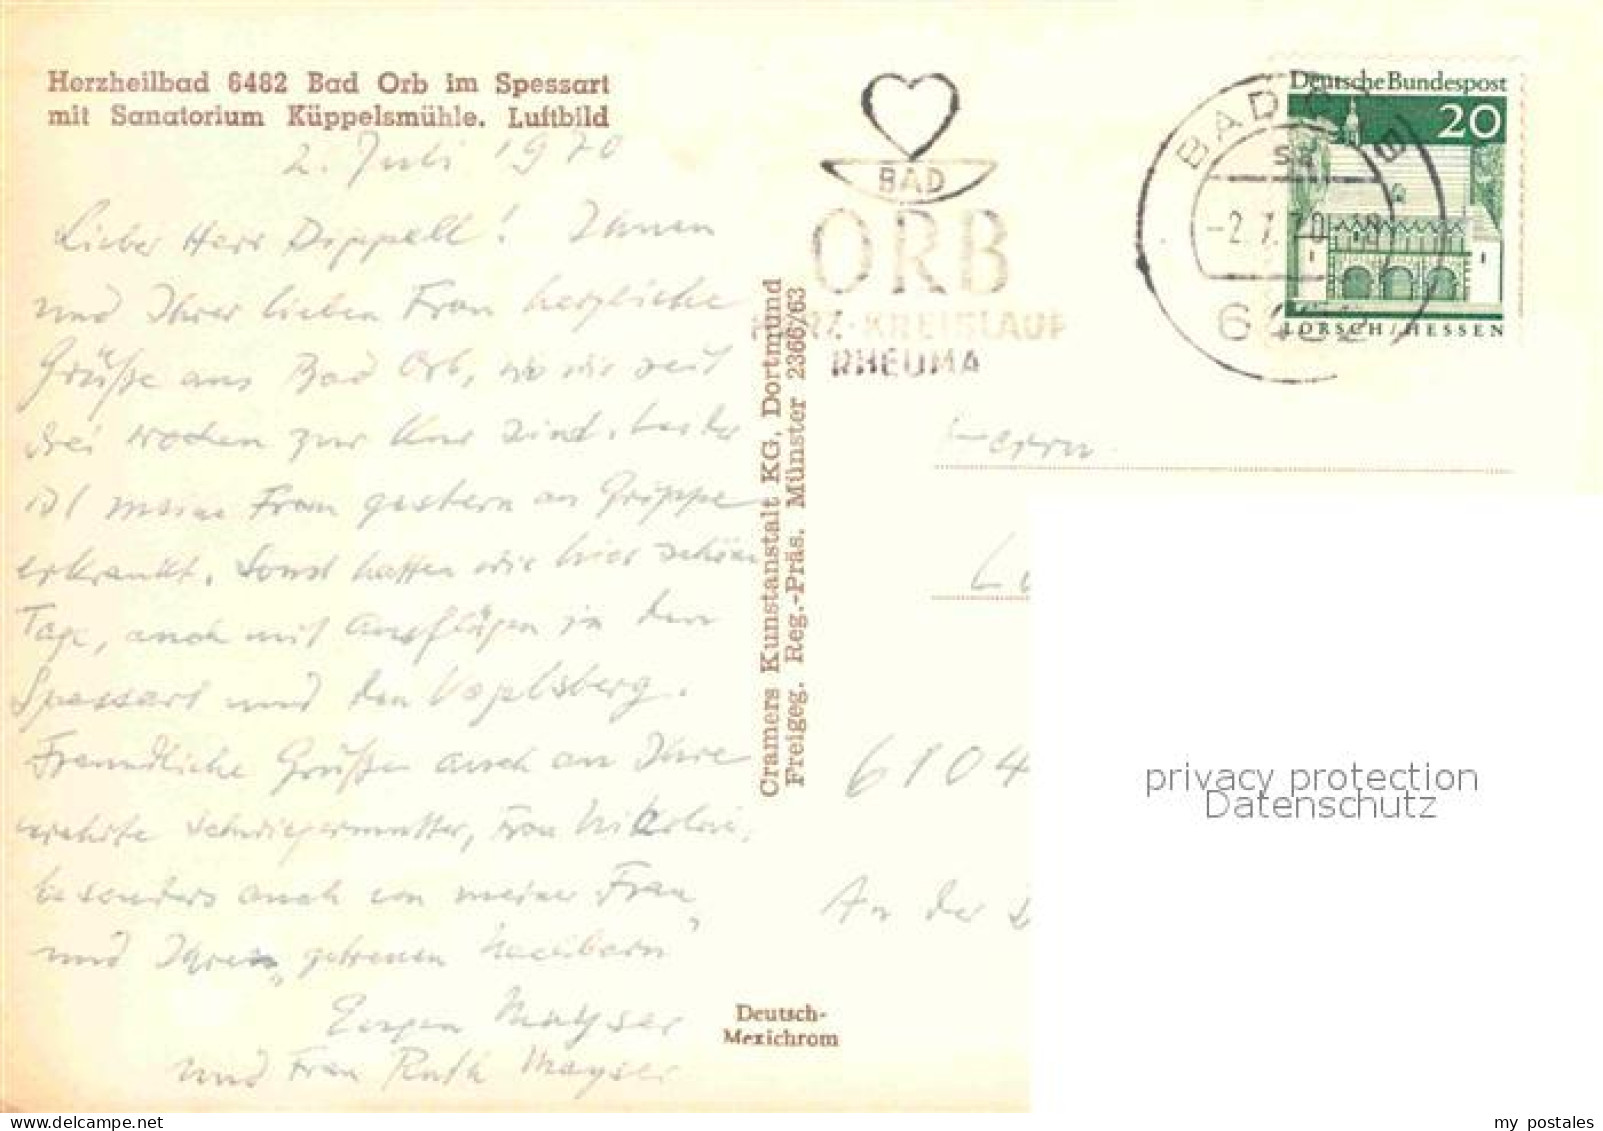 Herzheilbad 6482 Bad Orb im Spessart
mit Sanatorium Küppelsmühle. Luftbild
2. Juli 1970
Lieber Herr Dippell! Ihnen
und Ihrer lieben Frau herzliche
Grüße aus Bad Orb, wo wir seit
drei Wochen zur Kur sind. Leider
ist meine Frau gestern an Grippe
erkrankt. Sonst hatten wir hier schöne
Tage, auch mit Ausflügen in den
Spessart und den Vogelsberg.
Freundliche Grüße auch an Ihre
verehrte Schwiegermutter, Frau
besonders auch von meiner Frau
und Ihren „getreuen Nachbarn"
Eugen Mayser
und Frau Ruth Mayser
Cramers Kunstanstalt KG, Dortmund
Freigeg. Reg.-Präs. Münster 2366/63
Deutsch-
Mexichrom
BAD
ORB
HERZ-KREISLAUF
RHEUMA
BAD ORB
-2.7.70-18
6482
Deutsche Bundespost
20
LORSCH/HESSEN
Herrn
6104
An der
privacy protection
Datenschutz
my postales